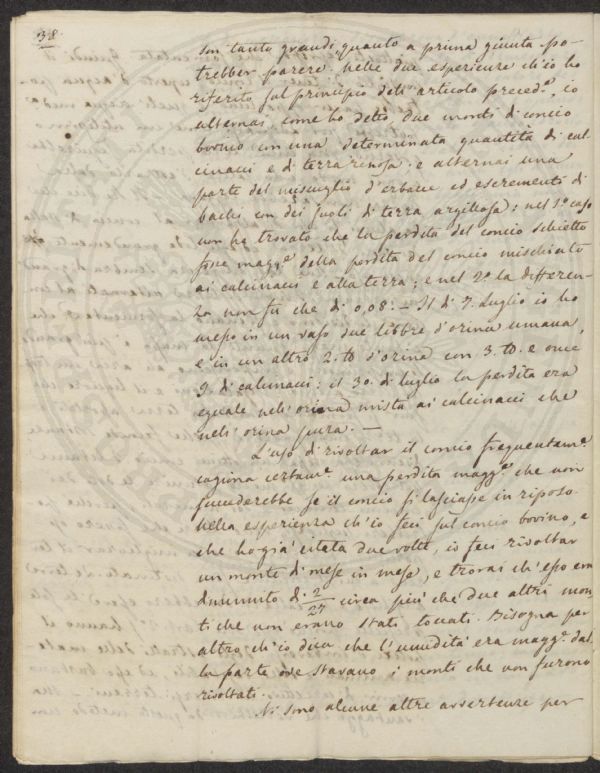 38.
son tanto grandi, quanto a prima giunta po-
trebber parere. Nelle due esperienze ch'io ho
riferito sul principio dell'articolo preced.e, io
alternai, come ho detto, due monti di concio
bovino con una determinata quantità di cal-
cinacci e di terra renosa; e alternai una
parte del miscuglio d'erbacce ed escrementi di
bachi con dei suoli di terra argillosa: nel 1.o caso
non ho trovato che la perdita del concio schietto
fosse magg.e della perdita del concio mischiato
ai calcinacci e alla terra; e nel 2.o la differen-
za non fu che di 0,08. – Il dì 7. Luglio io ho
messo in un vaso due libbre d'orina umana,
e in un altro 2. lb d'orina con 3. lb. e once
9. di calcinacci: il 30. di luglio la perdita era
eguale nell'orina mista ai calcinacci che
nell'orina pura. –
L'uso di rivoltar il concio frequentam.e
cagiona certam.e una perdita magg.e che non
succederebbe se il concio si lasciasse in riposo.
Nella esperienza ch'io feci sul concio bovino, e
che ho già citata due volte, io feci rivoltar
un monte di mese in mese, e trovai ch'esso era
diminuito di 2/27 circa più che due altri mon-
ti che non erano stati toccati. Bisogna per
altro ch'io dica che l'umidità era magg.e dal-
la parte ove stavano i monti che non furono
rivoltati.
Vi sono alcune altre avvertenze per